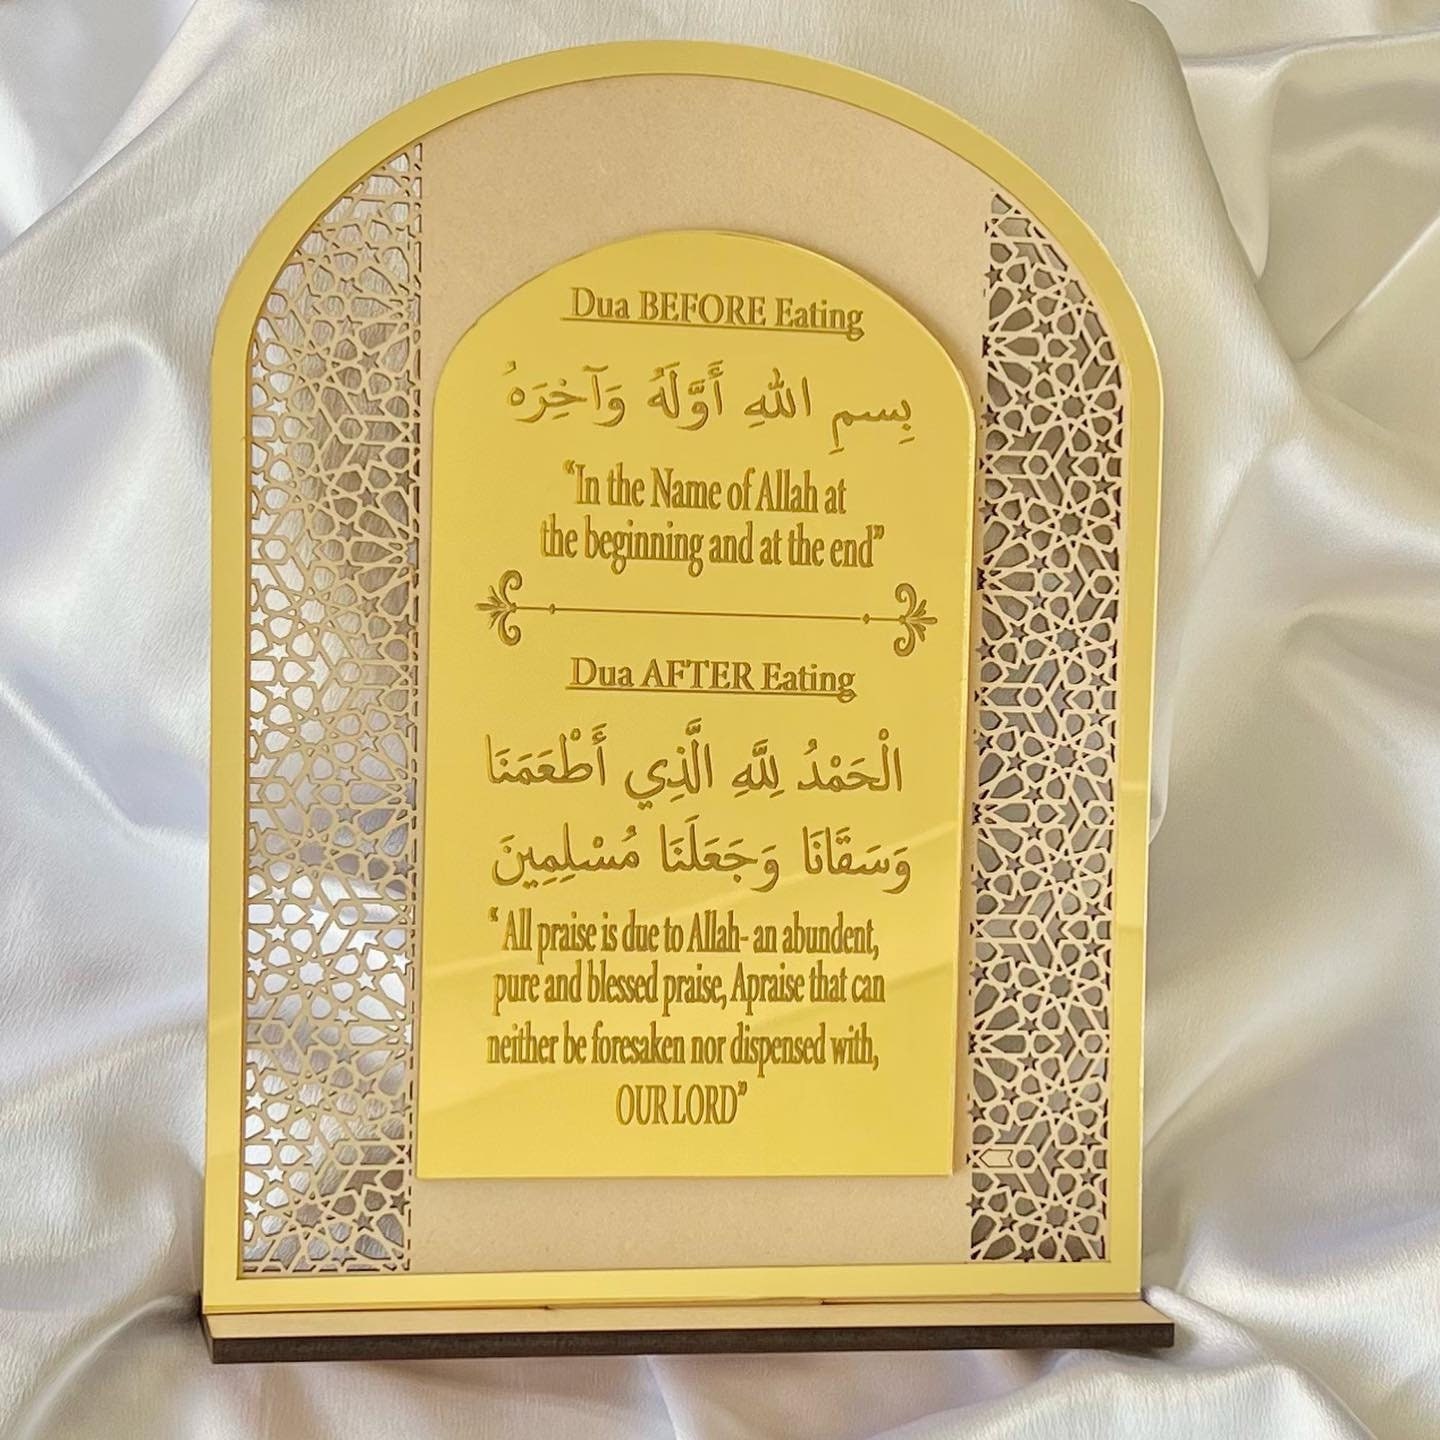 Dua BEFORE Eating
بِسمِ اللهِ أَوَّلَهُ وَآخِرَهُ
“In the Name of Allah at
the beginning and at the end”
Dua AFTER Eating
الْحَمْدُ لِلَّهِ الَّذِي أَطْعَمَنَا
وَسَقَانَا وَجَعَلَنَا مُسْلِمِينَ
“ All praise is due to Allah- an abundent,
pure and blessed praise, Apraise that can
neither be foresaken nor dispensed with,
OUR LORD”